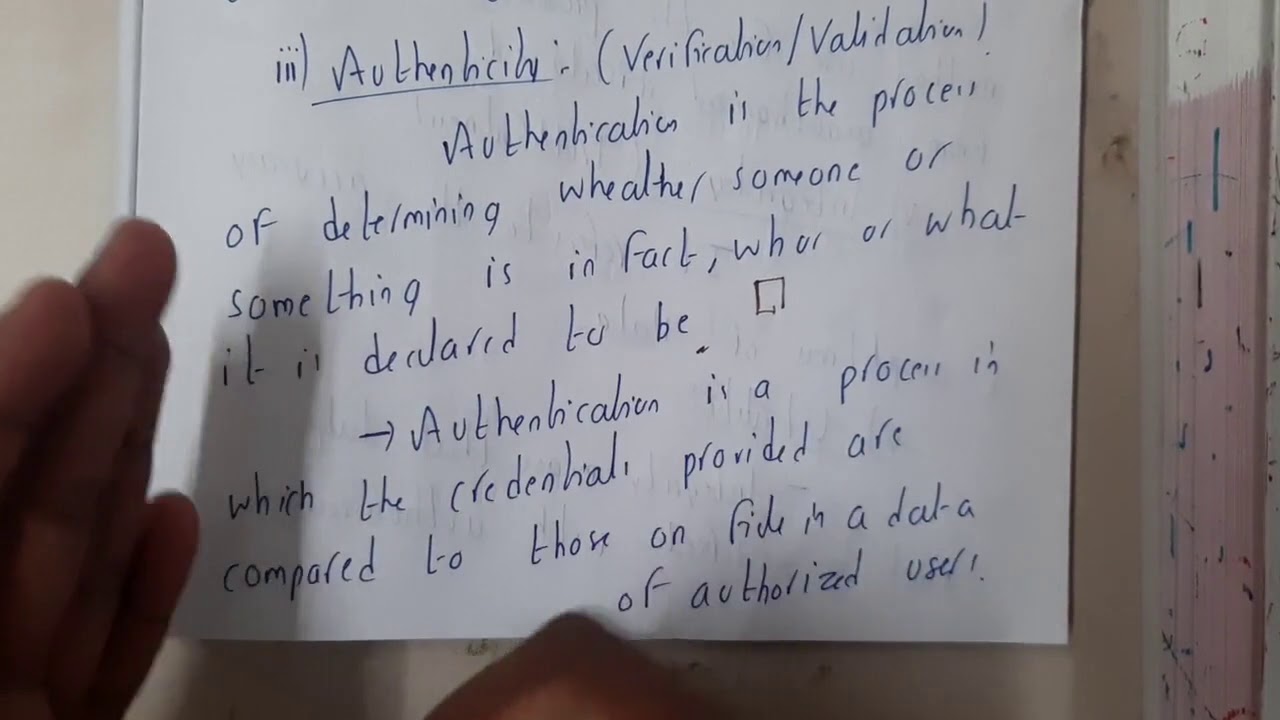 iii) Authenticity :- (Verification/Validation)
Authentication is the process
of determining wheather someone or
something is in fact, who or what
it is declared to be.
→ Authentication is a process in
which the credentials provided are
compared to those on file in a data
of authorized users.